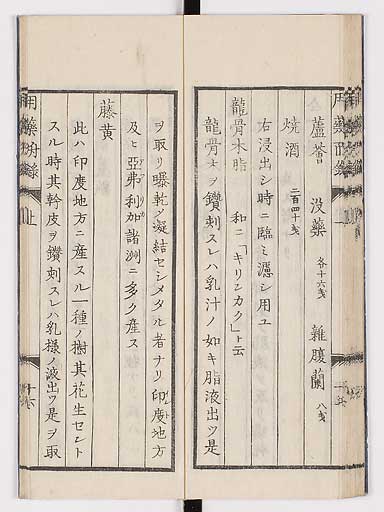 蘆薈 没藥 各十六戔 雑腹蘭 八戔
焼酒 二百四十戔
右浸出シ時ニ臨ミ濾シ用ユ
龍骨木脂 和ニ「キリンカク」ト云
龍骨木ヲ鑽刺スレハ乳汁ノ如キ脂液出ツ是
ヲ取リ曝乾ノ凝結セシメタル者ナリ印度地方
及ヒ亞弗利加諸洲ニ多ク産ス
藤黄
此ハ印度地方ニ産スル一種ノ樹其花生セント
スル時其幹皮ヲ鑽刺スレハ乳様ノ液出ツ是ヲ取